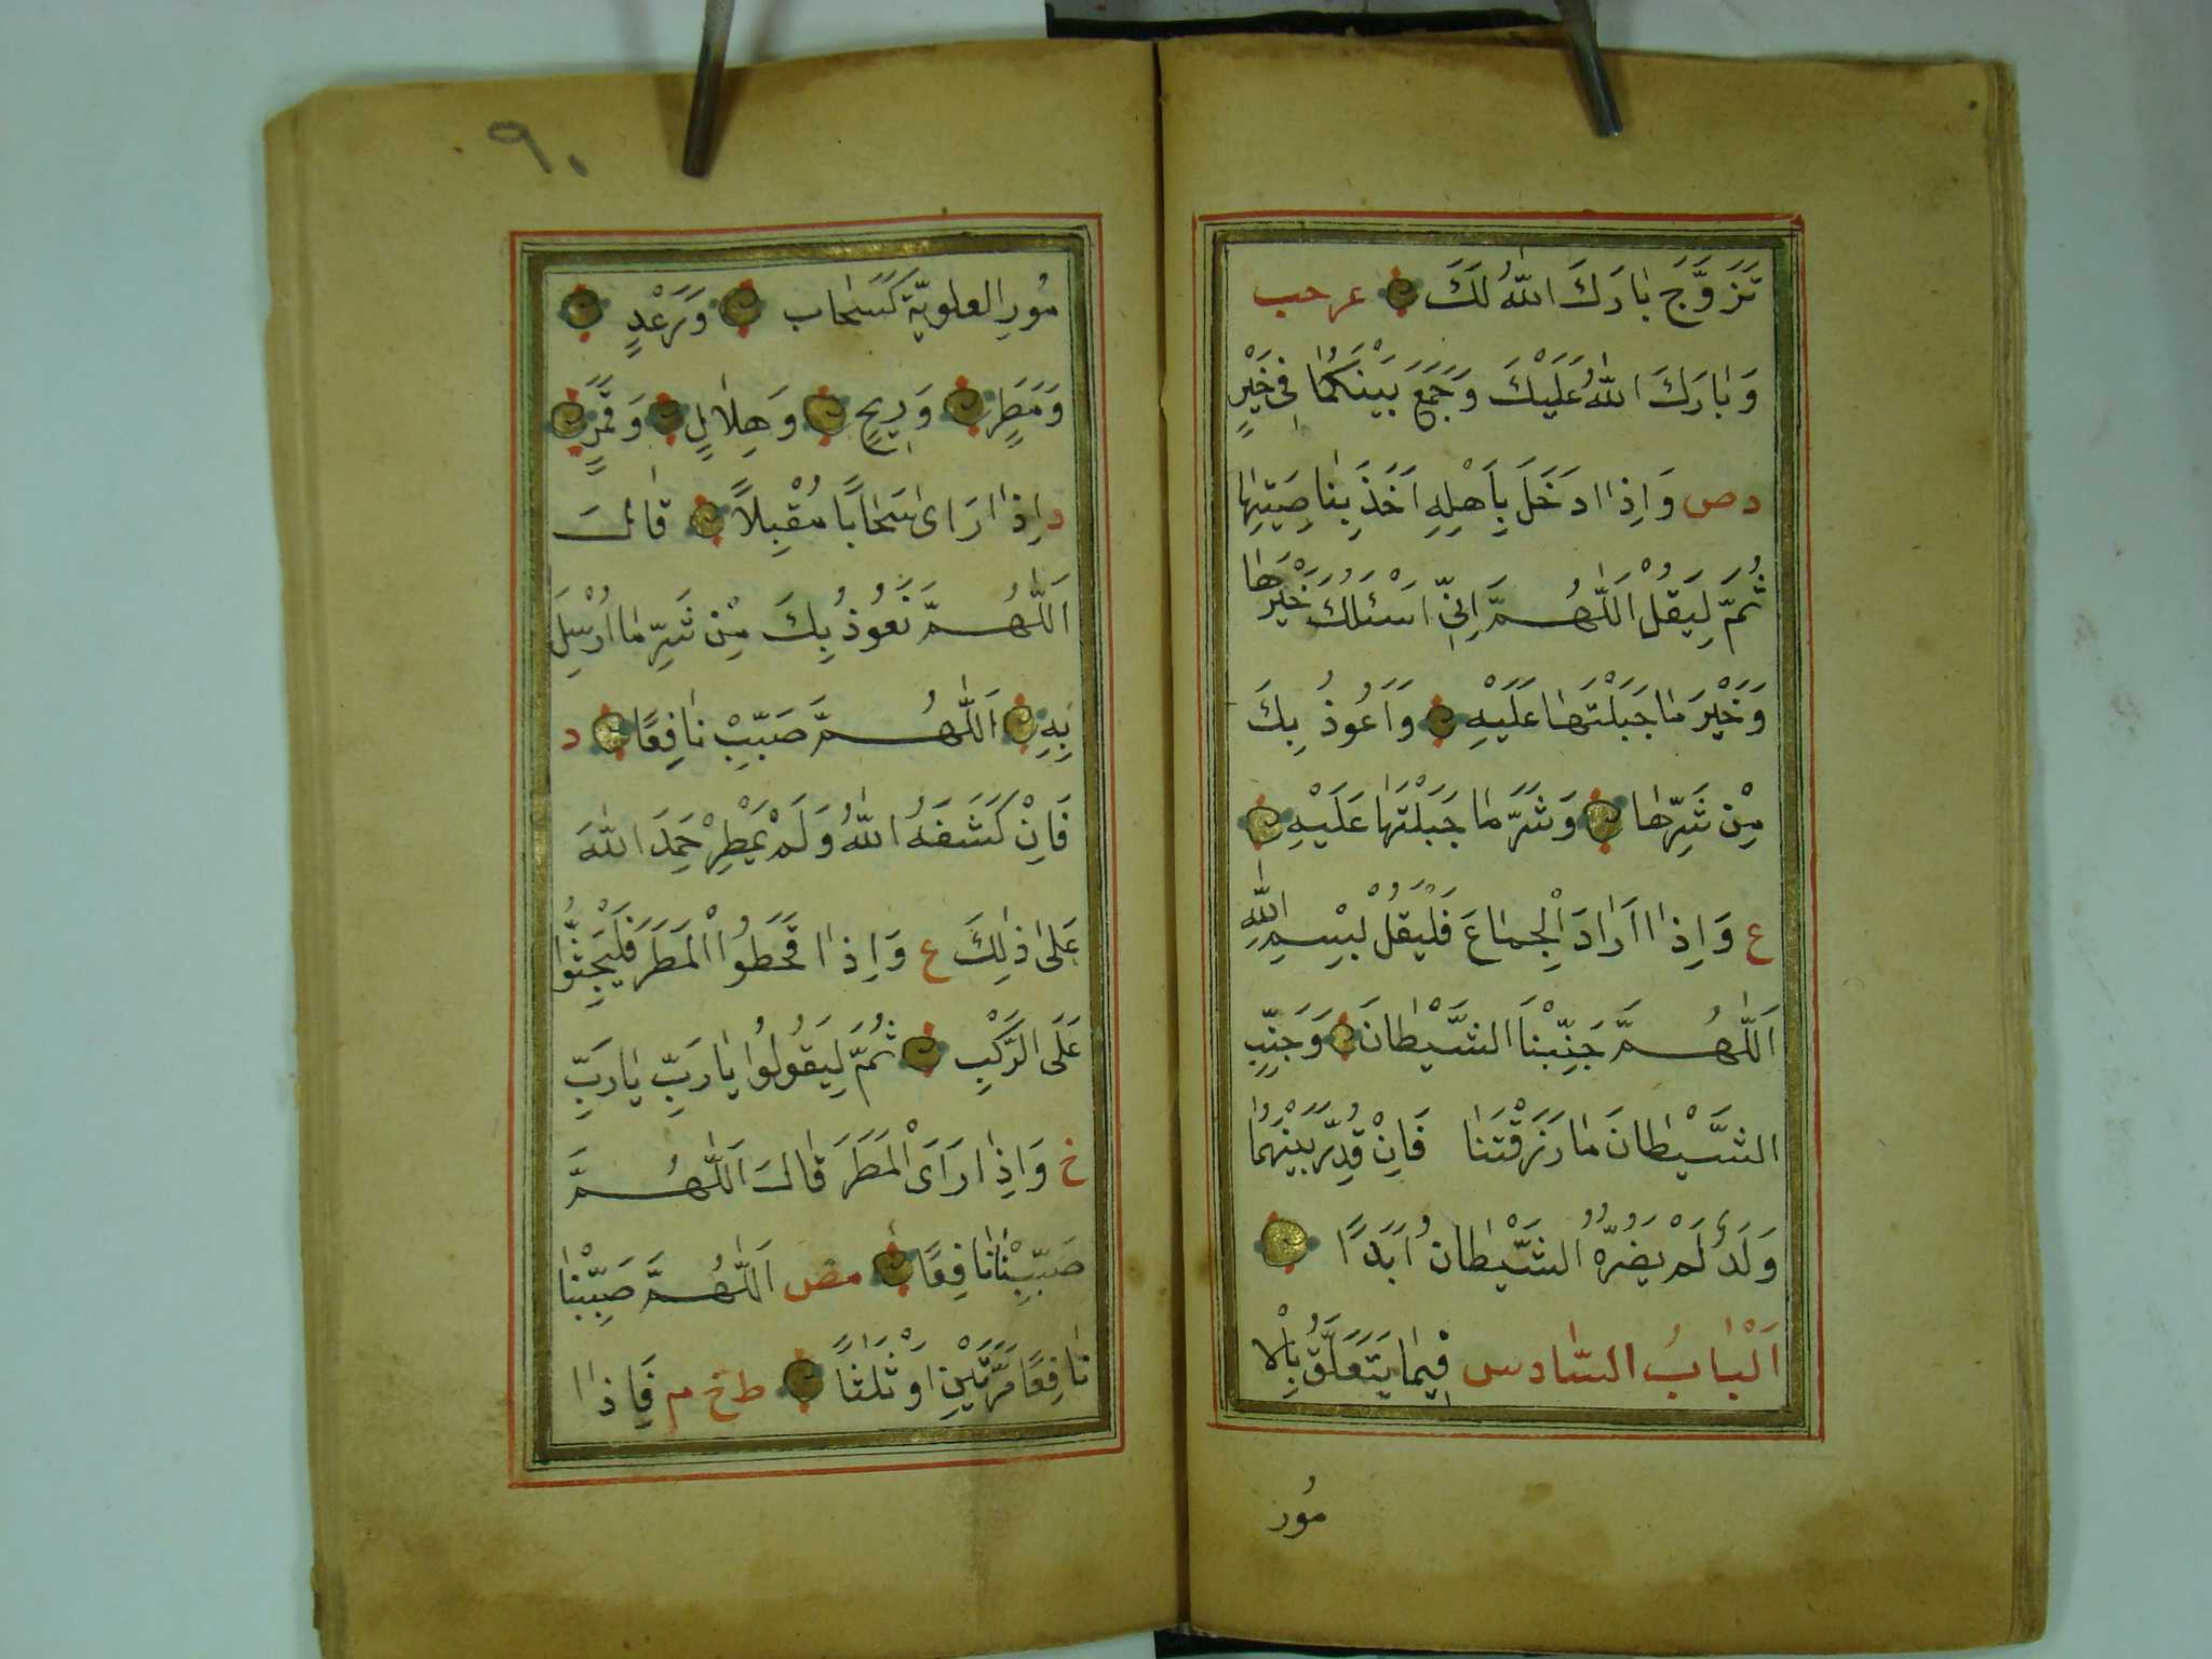 تَزَوَّجَ بَارَكَ اللّٰهُ لَكَ عر حب
وَبَارَكَ اللّٰهُ عَلَيْكَ وَجَمَعَ بَيْنَكُمَا فِي خَيْرٍ
د ص وَاِذَا دَخَلَ بِاَهْلِهِ اَخَذَ بِنَاصِيَتِهَا
ثُمَّ لِيَقُلْ اَللّٰهُمَّ اِنِّي اَسْئَلُكَ خَيْرَهَا
وَخَيْرَ مَا جَبَلْتَهَا عَلَيْهِ وَاَعُوذُ بِكَ
مِنْ شَرِّهَا وَشَرَّ مَا جَبَلْتَهَا عَلَيْهِ
ع وَاِذَا اَرَادَ الْجِمَاعَ فَلْيَقُلْ بِسْمِ اللّٰهِ
اَللّٰهُمَّ جَنِّبْنَا الشَّيْطَانَ وَجَنِّبِ
الشَّيْطَانَ مَا رَزَقْتَنَا فَاِنْ قُدِّرَ بَيْنَهُمَا
وَلَدٌ لَمْ يَضُرَّهُ الشَّيْطَانُ اَبَدًا
اَلْبَابُ السَّادس فِيمَا يَتَعَلَّقُ بِالْا
مُور
٩٠
مُورِ العلويّة كَسَحَاب وَرَعْدٍ
وَمَطَرٍ وَرِيحٍ وَهِلَالٍ وَقَمَرٍ
د اِذَا رَاى سَحَابًا مُقْبِلاً قَالَ
اَللّٰهُمَّ نَعُوذُ بِكَ مِنْ شَرِّ مَا اُرْسِلَ
بِهِ اَللّٰهُمَّ صَيِّبْ نَافِعًا د
فَاِنْ كَشَفَهُ اللّٰهُ وَلَمْ يُمْطِرْ حَمِدَ اللّٰهَ
عَلٰى ذٰلِكَ ع وَاِذَا قَحَطُوا الْمَطَرَ فَلْيَجْثُوا
عَلَى الرَّكْبِ ثُمَّ لِيَقُولُوا يَا رَبِّ يَا رَبِّ
خ وَاِذَا رَاَى الْمَطَرَ قَالَ اَللّٰهُمَّ
صَيِّبْنَا نَافِعًا مص اَللّٰهُمَّ صَيِّبْنَا
نَافِعًا مَرَّتَيْنِ اَوْ ثَلٰثًا ط خ م فَاِذَا